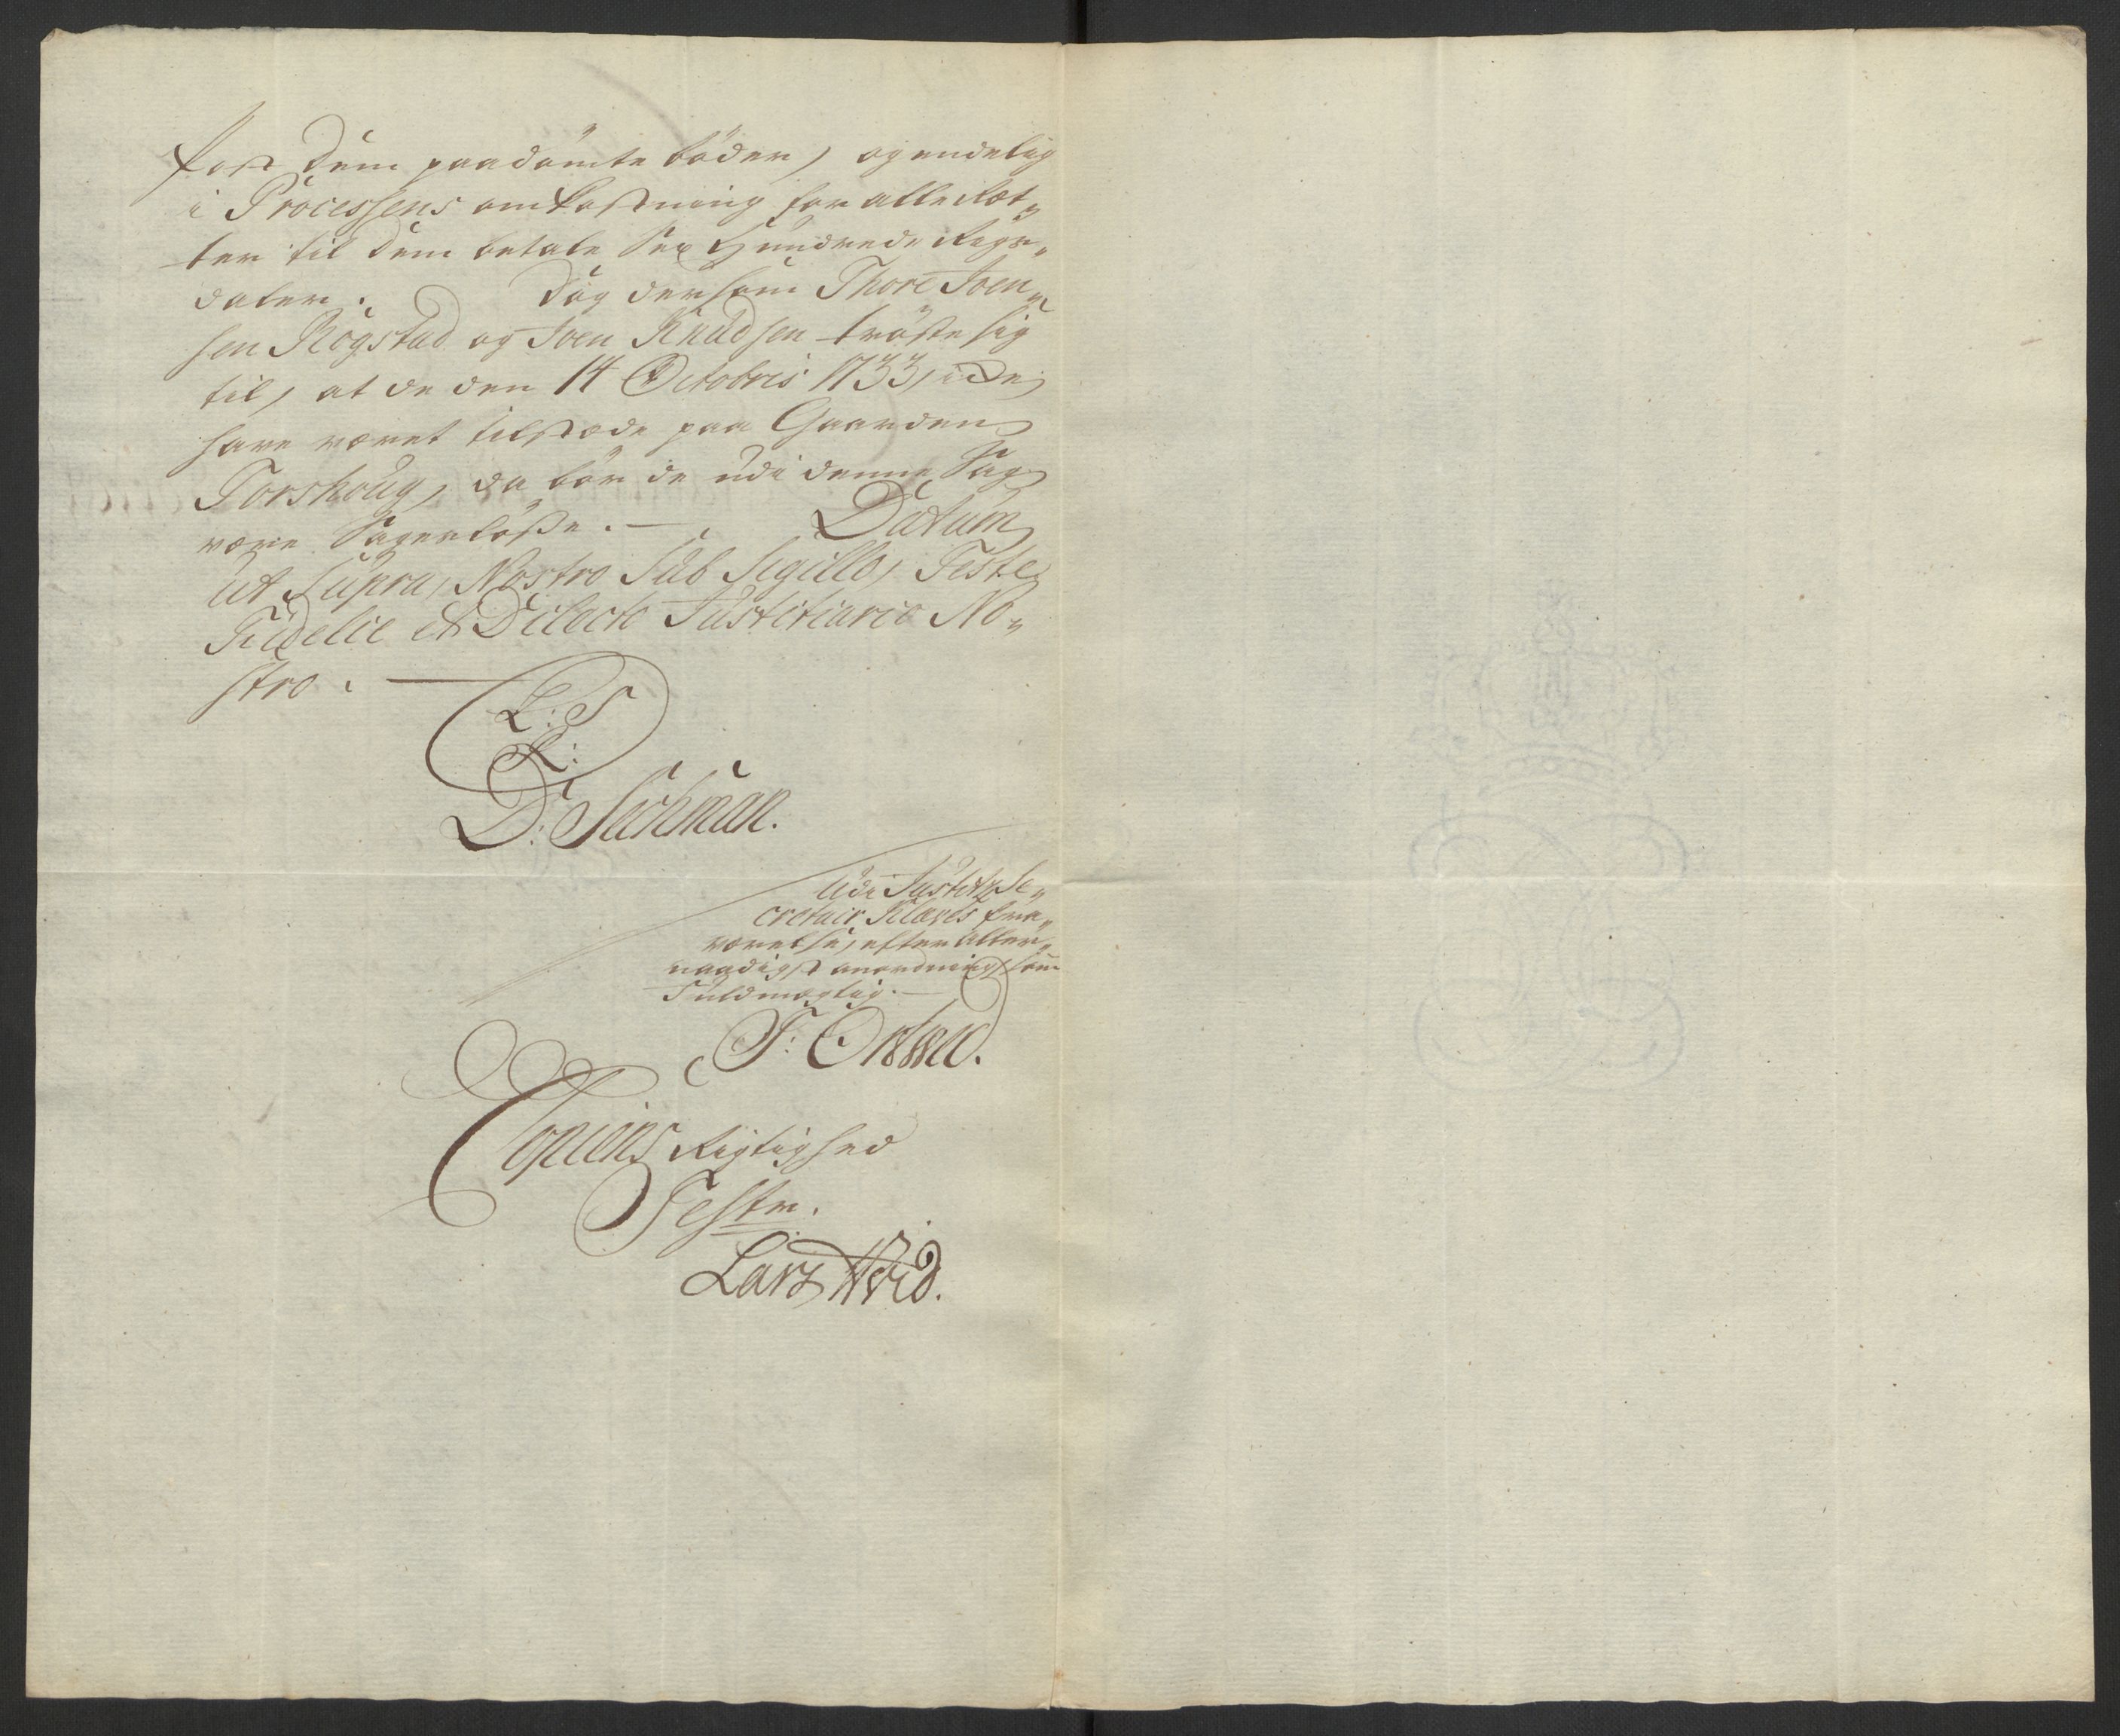 kost dem paadömte böder, og endelig
i Processens omkostning for alle Ret„
ter til dem betale Sex Hundrede Rigs„
daler. Dog dersom Thore Joen„
sen Rogstad og Joen Knudsen tröste sig
til, at de den 14 Octobris 1733, icke
have været tilstæde paa Gaarden
Torshoug, da bör de udi denne Sag
være Sagesløse. — Datum
ut Supra, Nostro Sub Sigillo, Teste
Fideli et Dilecto Justitiario No„
stro. —
L: S
R:
D: Sechman.
Udi Justitz Se„
cretair Klaves fra„
værelse, efter aller„
naadigst anordning som
Fuldmægtig. —
F:
Copiens Rigtighed
Testr.
Lars Wid.